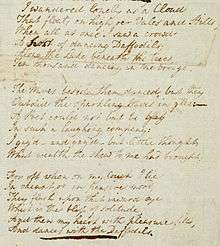 I wandered lonely as a Cloud
That float on high o'er Vales and Hills,
When all at once I saw a crowd
A host of dancing Daffodils;
Along the Lake, beneath the trees,
Ten thousand dancing in the breeze.
The waves beside them danced, but they
Outdid the sparkling waves in glee:—
A Poet could not but be gay
In such a laughing company:
I gaz'd—and gaz'd—but little thought
What wealth the shew to me had brought:
For oft when on my couch I lie
In vacant or in pensive mood,
They flash upon that inward eye
Which is the bliss of solitude,
And then my heart with pleasure fills,
And dances with the Daffodils.